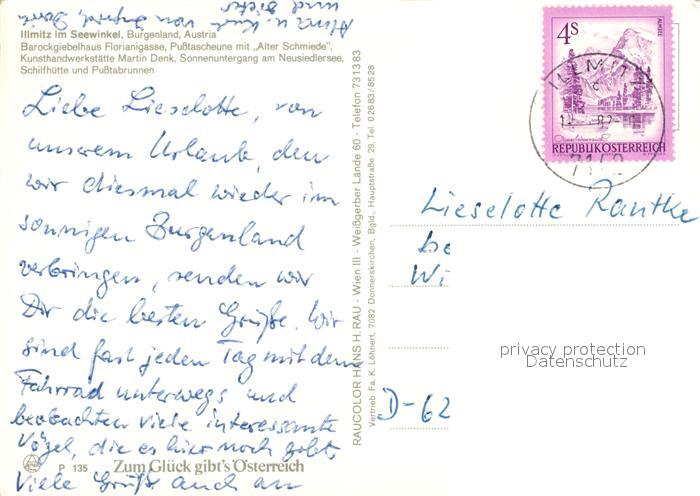 Illmitz im Seewinkel, Burgenland, Austria
Barockgiebelhaus Florianigasse, Pußtascheune mit „Alter Schmiede",
Kunsthandwerkstätte Martin Denk, Sonnenuntergang am Neusiedlersee,
Schilfhütte und Pußtabrunnen
Liebe Lieselotte, von
unserem Urlaub, den
wir diesmal wieder im
sonnigen Burgenland
verbringen, senden wir
Dir die besten Grüße. Wir
sind fast jeden Tag mit dem
Fahrrad unterwegs und
beobachten viele interessante
Vögel, die es hier noch gibt.
P 135 Zum Glück gibt's Österreich
Viele Grüße auch an
und
RAUCOLOR HANS H. RAU - Wien III - Weißgerber Lände 60 - Telefon 731383
Vertrieb Fa. K. Löhnert, 7082 Donnerskirchen, Bgld., Hauptstraße 29, Tel. 02683/8528
4S
ALMSEE
REPUBLIK ÖSTERREICH
7142
Lieselotte Rantke
Wi
D-62
privacy protection
Datenschutz